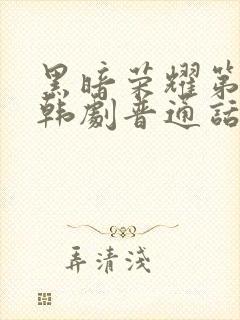 黑暗荣耀第
韩劇普通話
弄清浅